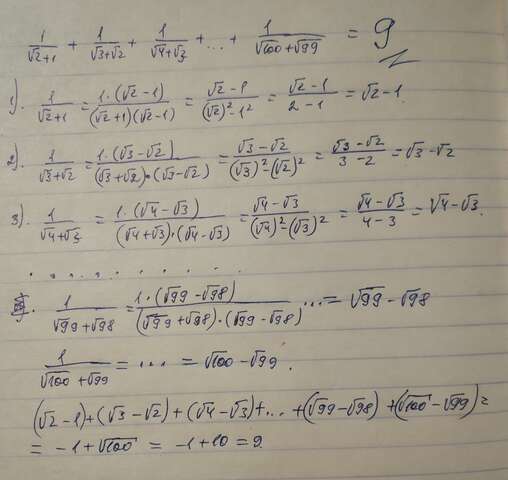 1/(√2+1) + 1/(√3+√2) + 1/(√4+√3) + ... + 1/(√100+√99) = 9
1). 1/(√2+1) = 1·(√2-1)/((√2+1)(√2-1)) = (√2-1)/((√2)²-1²) = (√2-1)/(2-1) = √2-1
2). 1/(√3+√2) = 1·(√3-√2)/((√3+√2)·(√3-√2)) = (√3-√2)/((√3)²-(√2)²) = (√3-√2)/(3-2) = √3-√2
3). 1/(√4+√3) = 1·(√4-√3)/((√4+√3)·(√4-√3)) = (√4-√3)/((√4)²-(√3)²) = (√4-√3)/(4-3) = √4-√3.
. . . . . . . . . . .
1/(√99+√98) = 1·(√99-√98)/((√99+√98)·(√99-√98)) ... = √99-√98
1/(√100+√99) = .... = √100-√99.
(√2-1)+(√3-√2)+(√4-√3)+...+(√99-√98)+(√100-√99)=
= -1+√100 = -1+10=9.